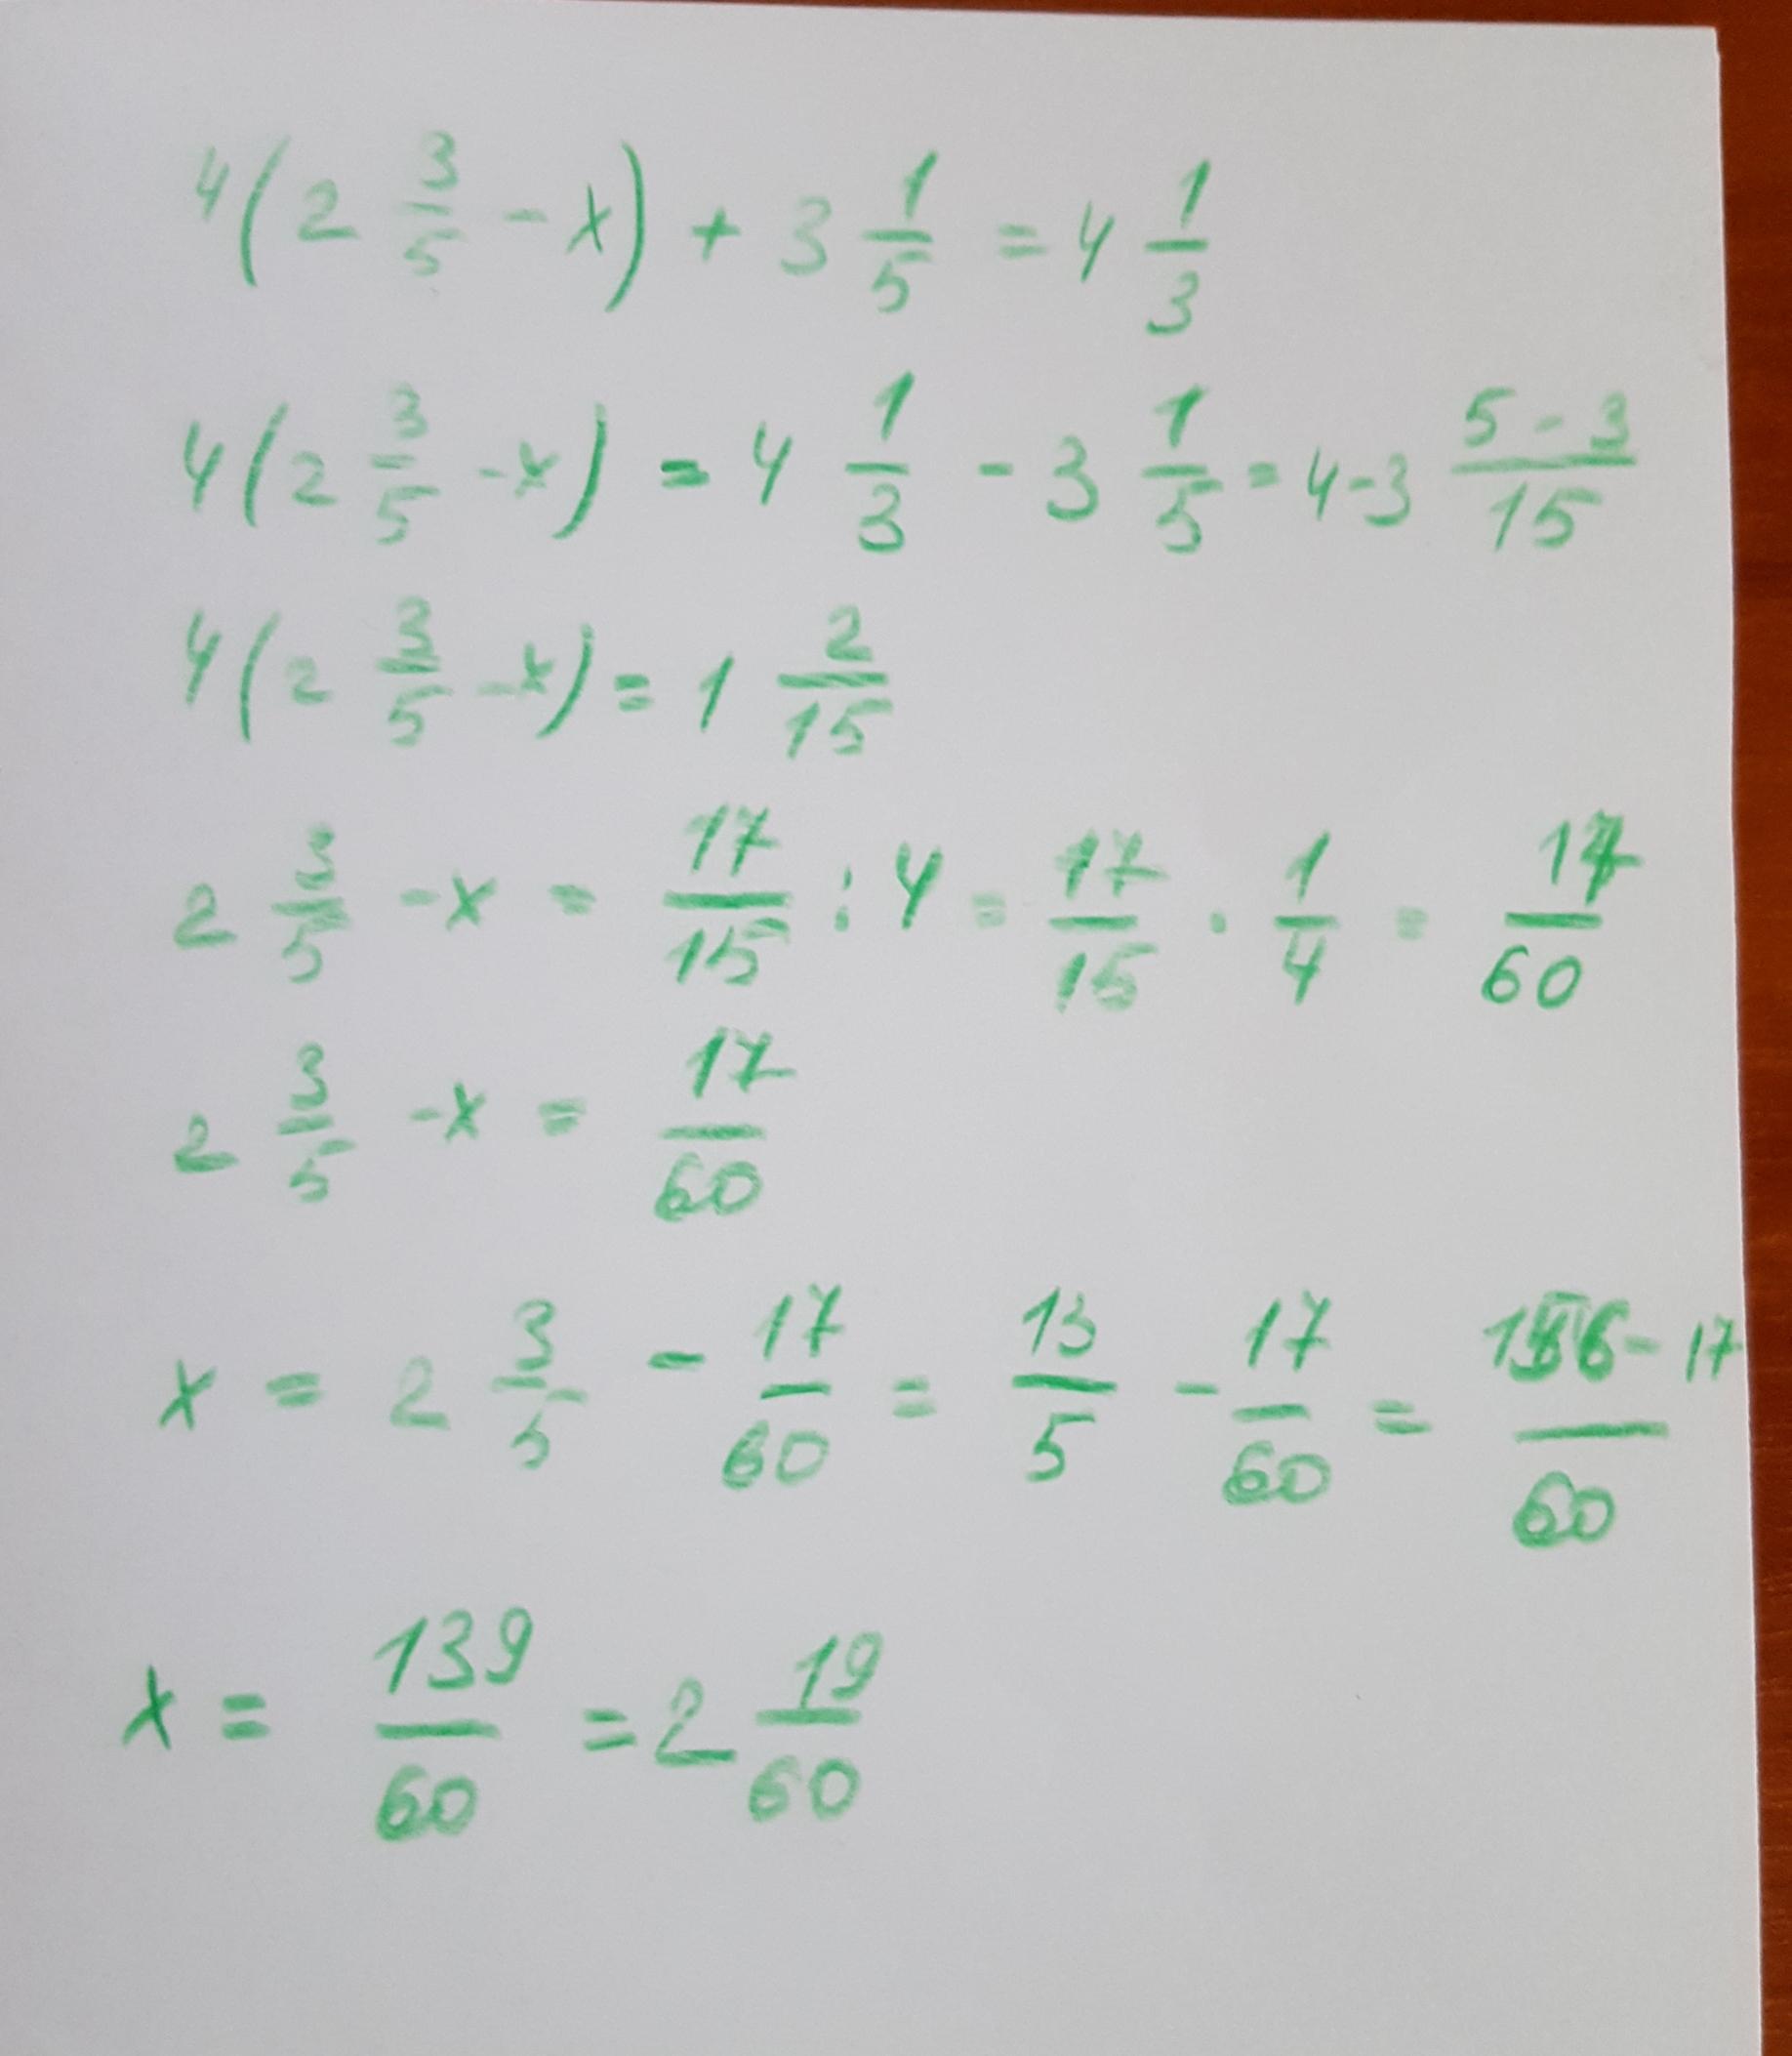 4(2 3/5 - x) + 3 1/5 = 4 1/3
4(2 3/5 - x) = 4 1/3 - 3 1/5 = 4-3 5-3/15
4(2 3/5 - x) = 1 2/15
2 3/5 - x = 17/15 : 4 = 17/15 · 1/4 = 17/60
2 3/5 - x = 17/60
x = 2 3/5 - 17/60 = 13/5 - 17/60 = 156-17/60
x = 139/60 = 2 19/60